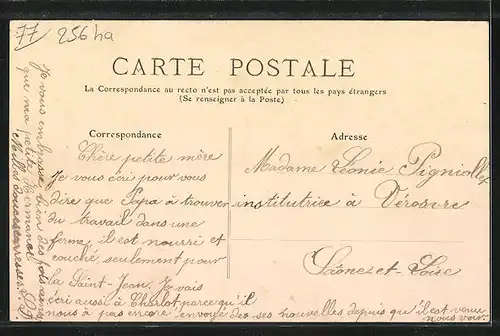 77 256 ha
CARTE POSTALE
La Correspondance au recto n'est pas acceptée par tous les pays étrangers
(Se renseigner à la Poste)
Correspondance
Chère petite mère
Je vous écri pour vous
dire que Papa à trouver
du travail dans une
ferme il est nourri et
couché seulement pour
la Saint-Jean. Je vais
écri aussi à Charlot parce qu'il
nous à pas encore envoyé des ses nouvelles depuis qu'il est venu
nous voir.
Adresse
Madame Léonie
institutrice à Vérosvre
Saône-et-Loire
Je vous embrasse bien des fois ainsi
que ma petite
Milles